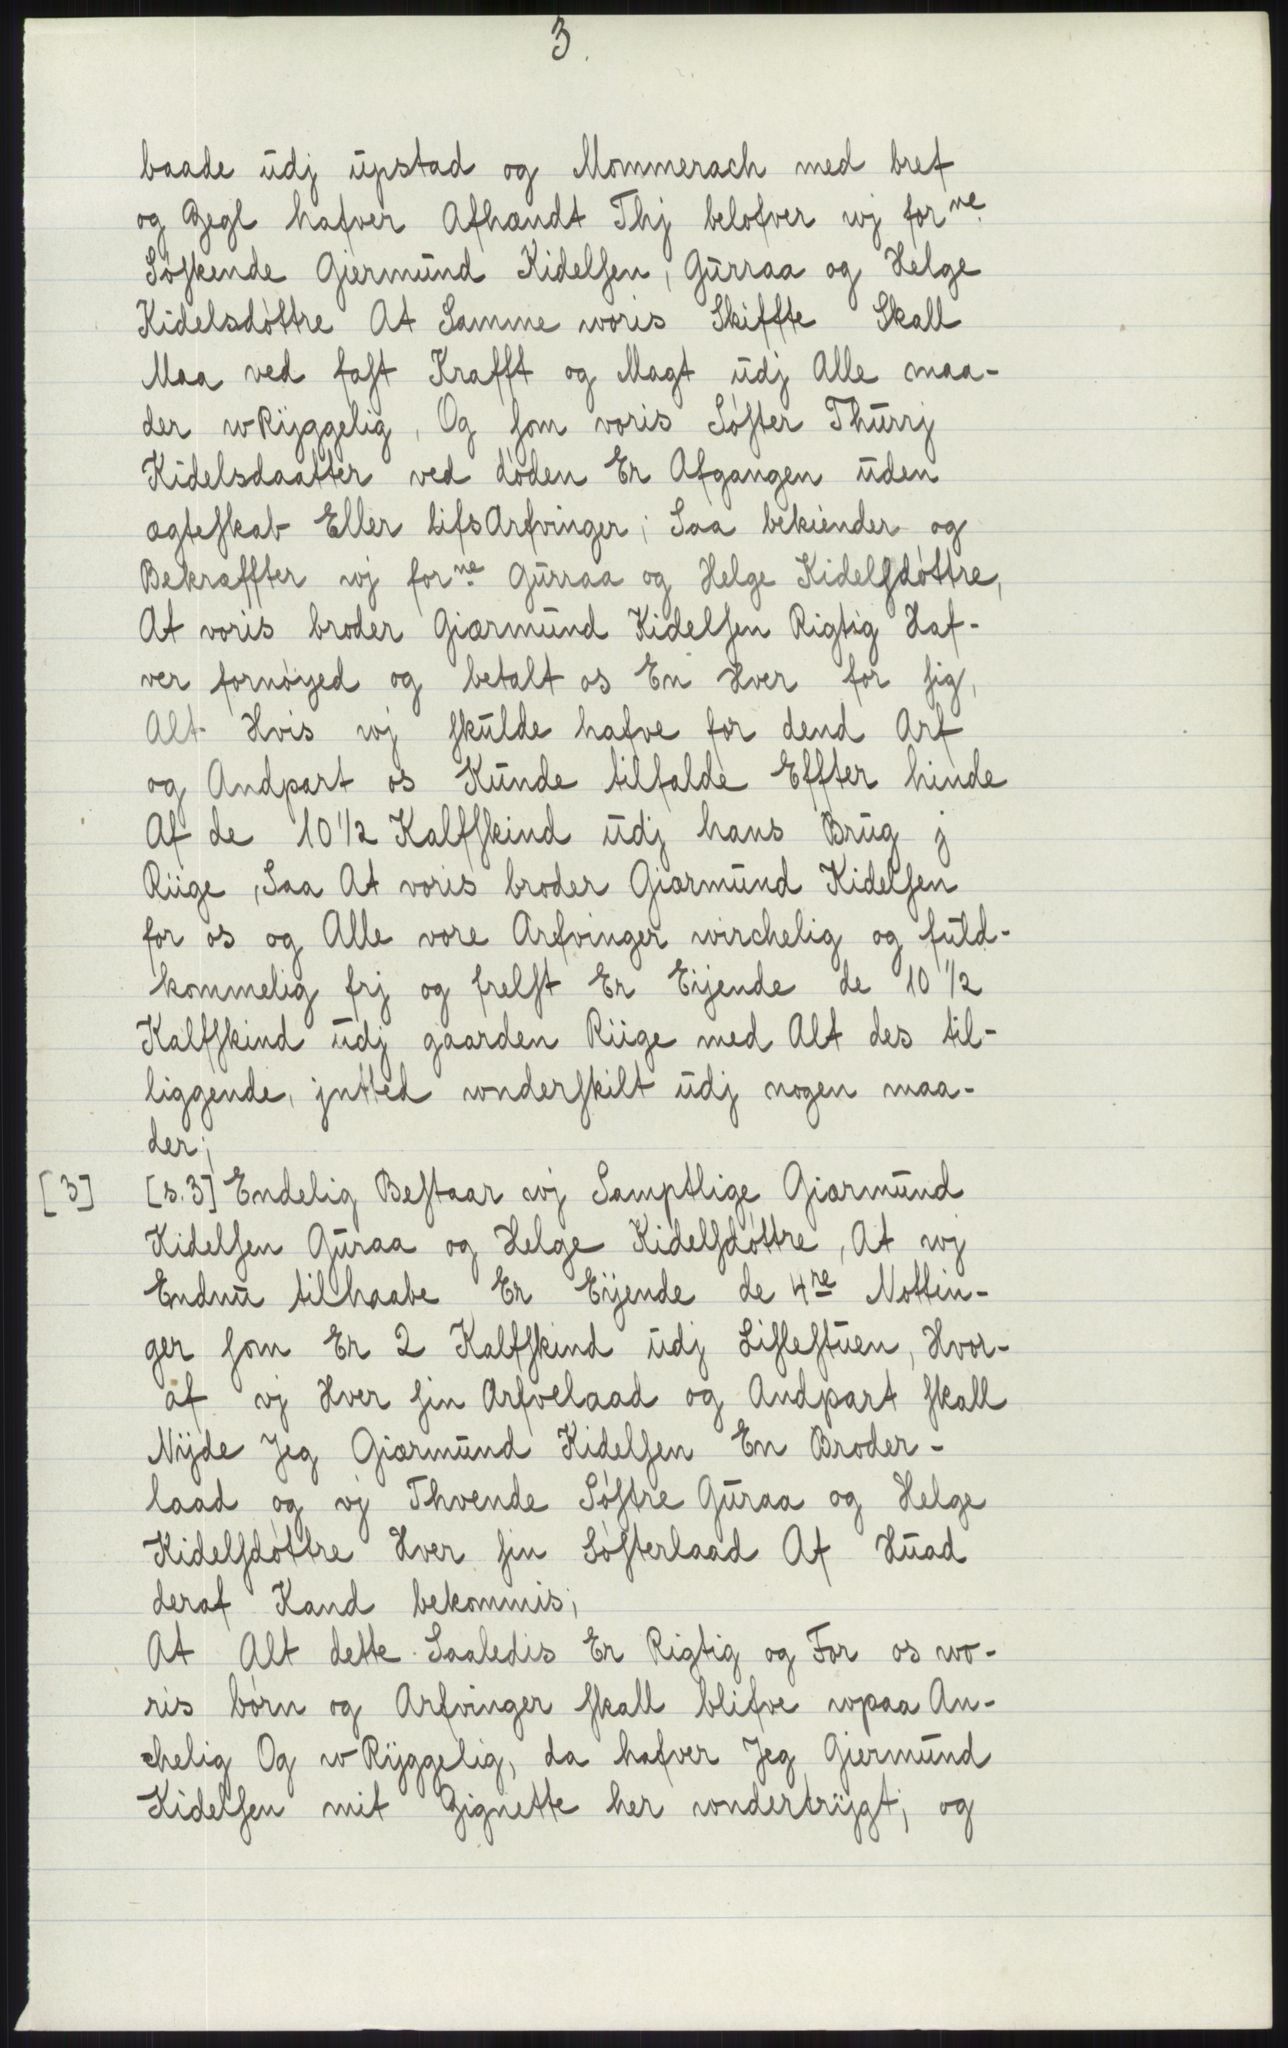 3.
baade udj upstad og Mommerach med bref
og Zegl hafver Afhændt Thj belofver wj forne
Søskende Gjermund Kidelsen, Gurraa og Helge
Kidelsdøttre At Samme woris Skiffte Skall
Maa ved fast Krafft og Magt udj Alle maa-
der wRÿggelig, Og som voris Søster Thurrj
Kidelsdaatter ved døden Er Afgangen uden
ægteskab Eller LifsArfvinger; Saa bekiender og
Bekræffter wj forne Gurraa og Helge Kidelsdøttre,
At voris broder Giærmund Kidelsen Rigtig Haf-
ver fornøyed og betalt os En Hver for sig,
Alt Hvis wj skulde hafve for dend Arf
og Andpart os Kunde tilfalde Effter hinde
Af de 10 1/2 Kalfskind udj hans Brug j
Riige, Saa At voris broder Giærmund Kidelsen
for os og Alle vore Arfvinger wirchelig og fuld-
kommelig frj og frelst Er Eijende de 10 1/2
Kalfskind udj gaarden Riige med Alt des til-
liggende, jntted wnderskilt udj nogen maa-
der;
[3] [s.3] Endelig Bestaar wj Samptlige Giærmund
Kidelsen Guraa og Helge Kidelsdøttre, At wj
Endnu tilhaabe Er Eÿende de 4re Nottin-
ger som Er 2 Kalfskind udj Lislestuen, Hvor-
af vj Hver sin Arfvelaad og Andpart skall
Nÿde Jeg Giærmund Kidelsen En Broder-
laad og vj Thvende Søstre Guraa og Helge
Kidelsdøttre Hver sin Søsterlaad Af Huad
deraf Kand bekommis;
At Alt dette Saaledis Er Rigtig og For os wo-
ris børn og Arfvinger skall blifve wpaa An-
chelig Og wRÿggelig, da hafver Jeg Giermund
Kidelsen mit Zignette her wndertrÿgt; og